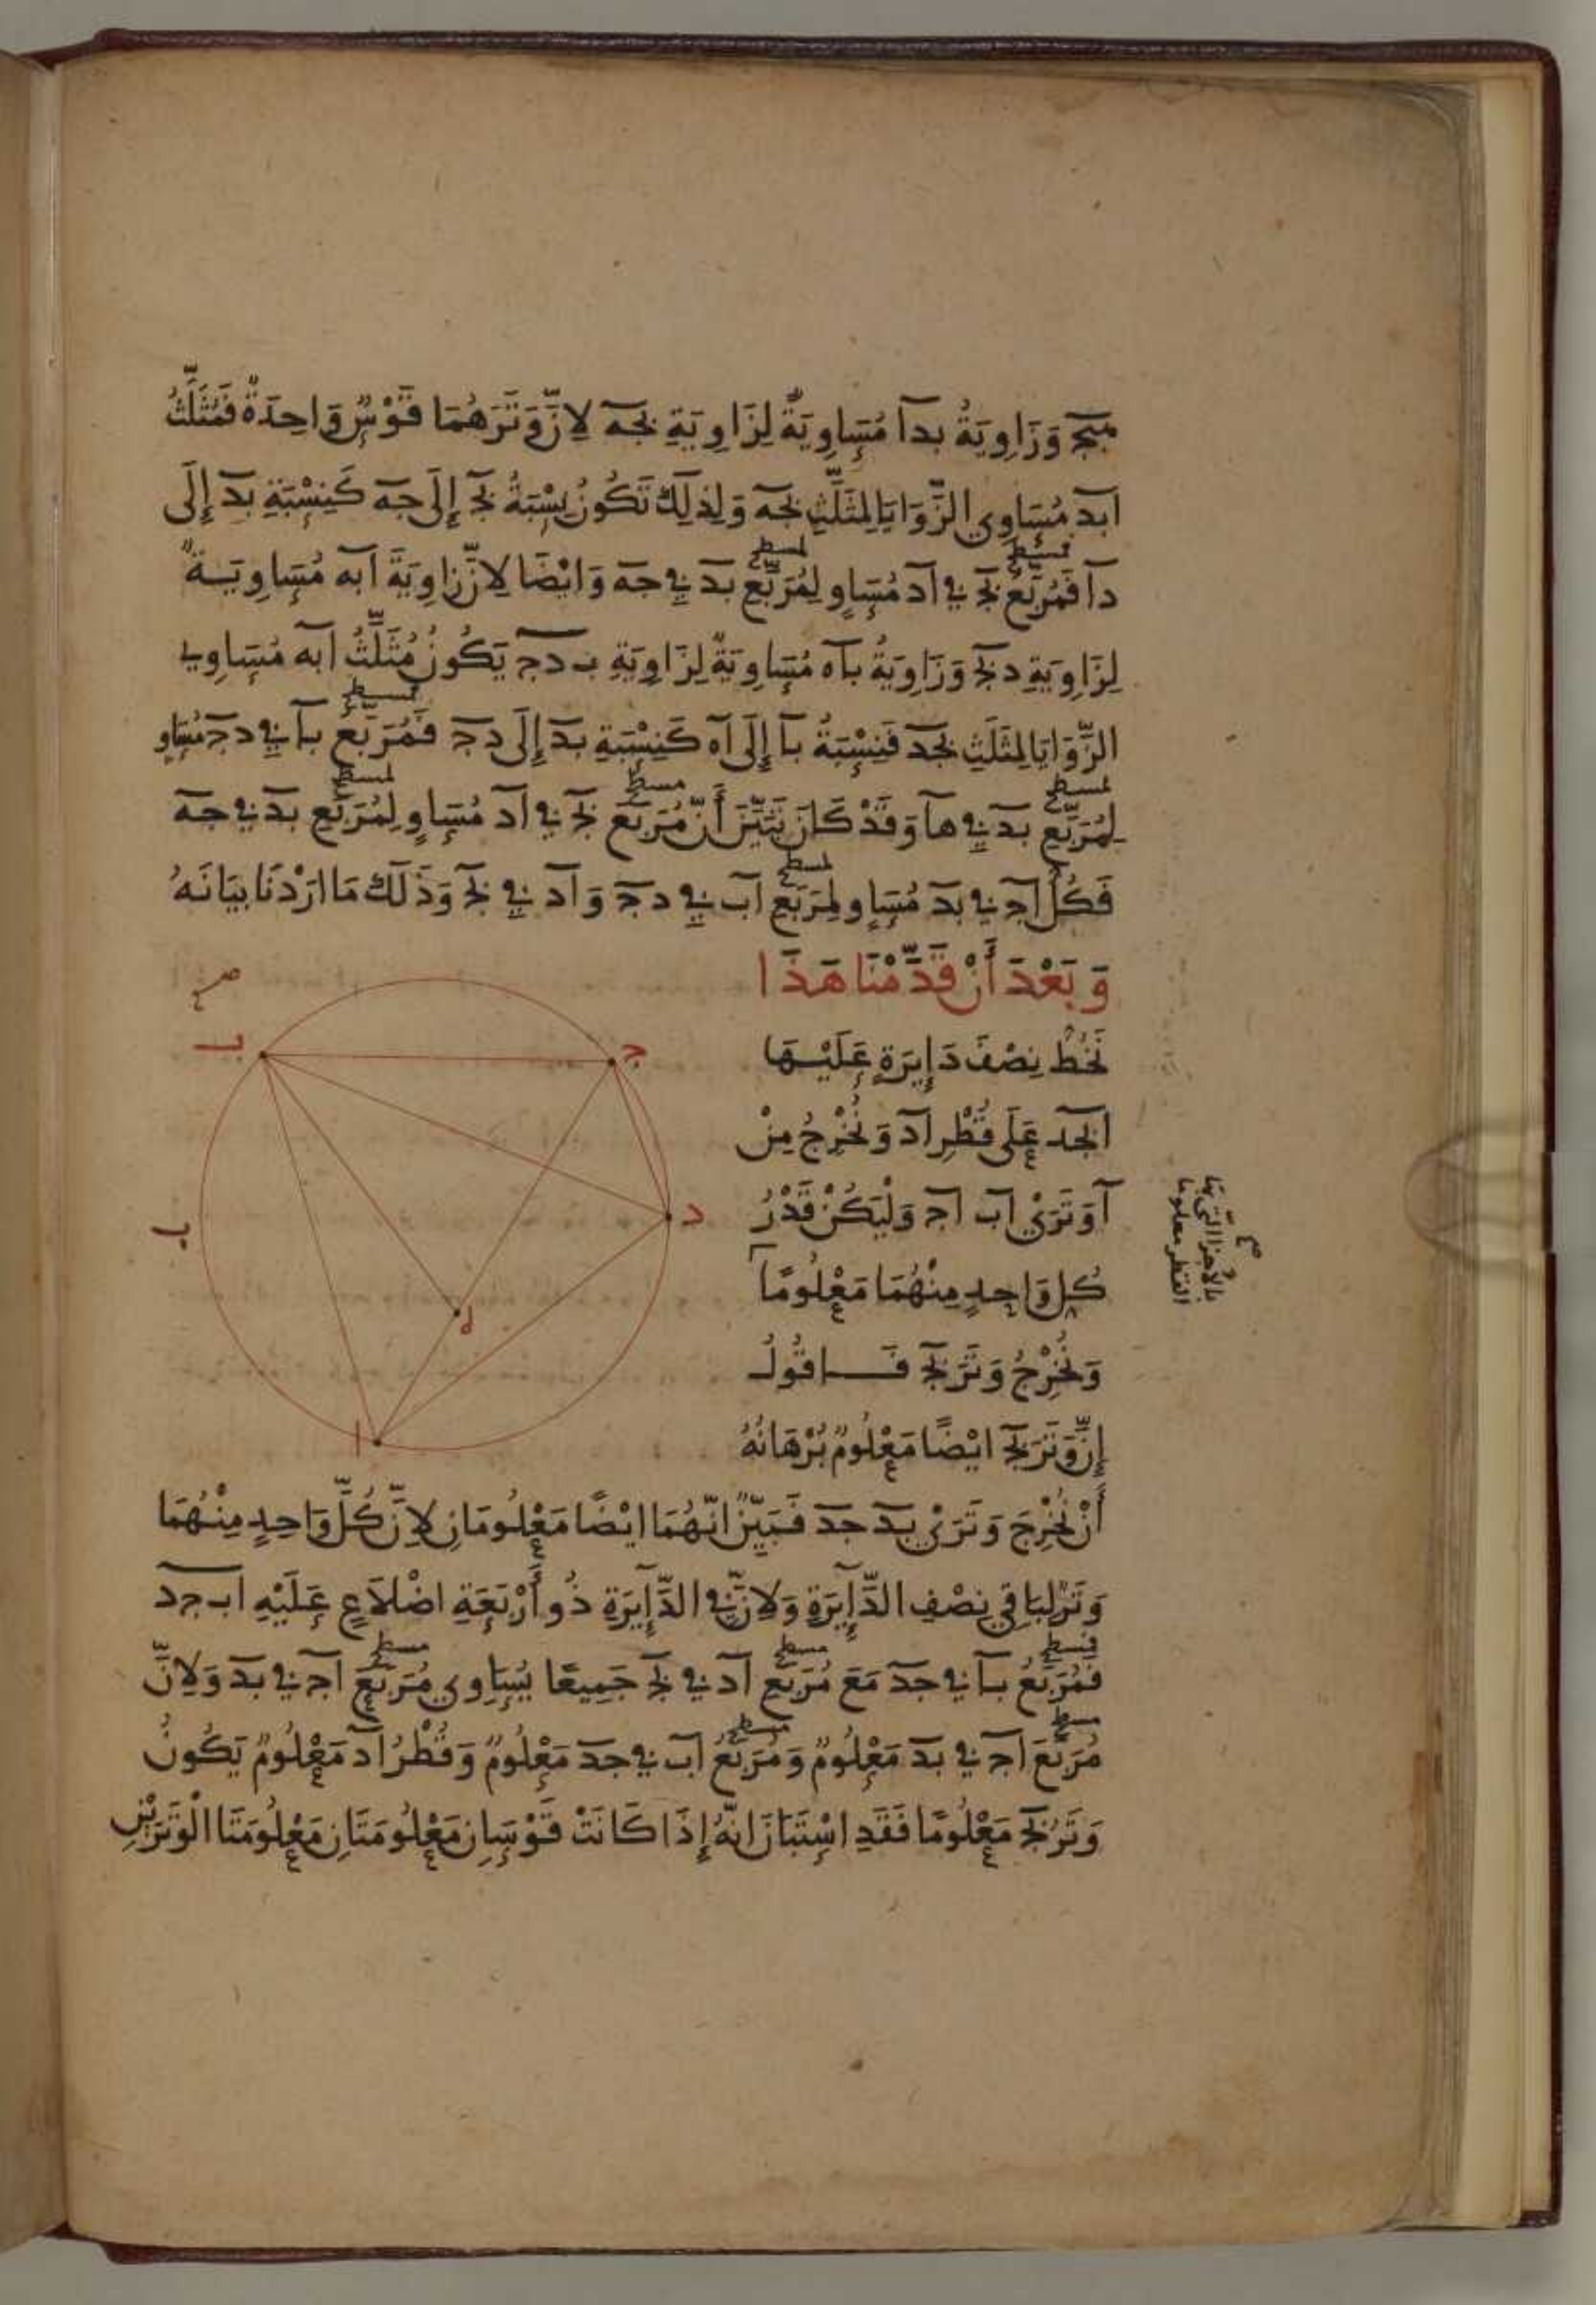 وَزَاوِيَةُ بدا مُسَاوِيَةٌ لِزَاوِيَةِ بجه لِاَنَّ وَتَرَهُمَا قَوْسٌ وَاحِدَةٌ فَمُثَلَّثُ
ابد مُسَاوِي الزَّوَايَا لِمُثَلَّثِ بجه وَلِذَلِكَ تَكُونُ نِسْبَةُ بج إِلَى جه كَنِسْبَةِ بد إِلَى
فمسطح لمسطح
دا فَمُرَبَّعُ بج في اد مُسَاوٍ لِمُرَبَّعِ بد في جه وَايْضًا لِاَنَّ زَاوِيَةَ ابه مُسَاوِيَةٌ
لِزَاوِيَةِ دبج وَزَاوِيَةُ باه مُسَاوِيَةٌ لِزَاوِيَةِ ب دج يَكُونُ مُثَلَّثُ ابه مُسَاوِي
فمسطح
الزَّوَايَا لِمُثَلَّثِ بجد فَنِسْبَةُ با إِلَى اه كَنِسْبَةِ بد إِلَى دج فَمُرَبَّعُ با في دج مُسَاوٍ
لمسطح مسطح لمسطح
لِمُرَبَّعِ بد في ها وَقَدْ كَانَ تَبَيَّنَ أَنَّ مُرَبَّعَ بج في اد مُسَاوٍ لِمُرَبَّعِ بد في جه
لمسطح
فَكُلُّ اج في بد مُسَاوٍ لِمُرَبَّعِ اب في دج وَ اد في بج وَذَلَكَ مَا ارَدْنَا بيَانَهُ
وَبَعْدَ أَنْ قَدَّمْنَا هَذَا
نَخُطُّ نِصْفَ دَايِرَةٍ عَلَيْهَا
ابجد عَلَى قُطْرِ اد وَنُخْرِجُ مِنْ
ا وَتَرَيْ اب اج وَلْيَكُنْ قَدْرُ
كُلِ وَاحِدٍ مِنْهُمَا مَعْلُومًا
وَنُخْرِجُ وَتَرَ بج فَاقُولُ
إِنَّ وَتَرَ بج ايْضًا مَعْلُومٌ بُرْهَانُهُ
أَنْ نُخْرِجَ وَتَرَيْ بد جد فَبَيِّنٌ انَّهُمَا ايْضًا مَعْلُومَانِ لِاَنَّ كُلَّ وَاحِدٍ مِنْهُمَا
وَتَرٌ لِبَاقِي نِصْفِ الدَّايِرَةِ وَلِاَنَّ في الدَّايِرَةِ ذُو أَرْبَعَةِ اضْلَاعٍ عَلَيْهِ اب جد
فمسطح مسطح مسطح
فَمُرَبَّعُ با في جد مَعَ مُرَبَّعِ اد في بج جَمِيعًا يُسَاوِي مُرَبَّعَ اج في بد وَلِاَنَّ
مسطح مسطح
مُرَبَّعَ اج في بد مَعْلُومٌ وَمُرَبَّعُ اب في جد مَعْلُومٌ وَقُطْرُ اد مَعْلُومٌ يَكُونُ
وَتَرُ بج مَعْلُومًا فَقَدِ اسْتَبَانَ انَّهُ إِذَا كَانَتْ قَوْسَانِ مَعْلُومَتَانِ مَعْلُومَتَا الْوَتَرَيْنِ
صح
ب
ج
د
ب
ه
ا
بالاجزا التي بها
القطر معلوما
صح